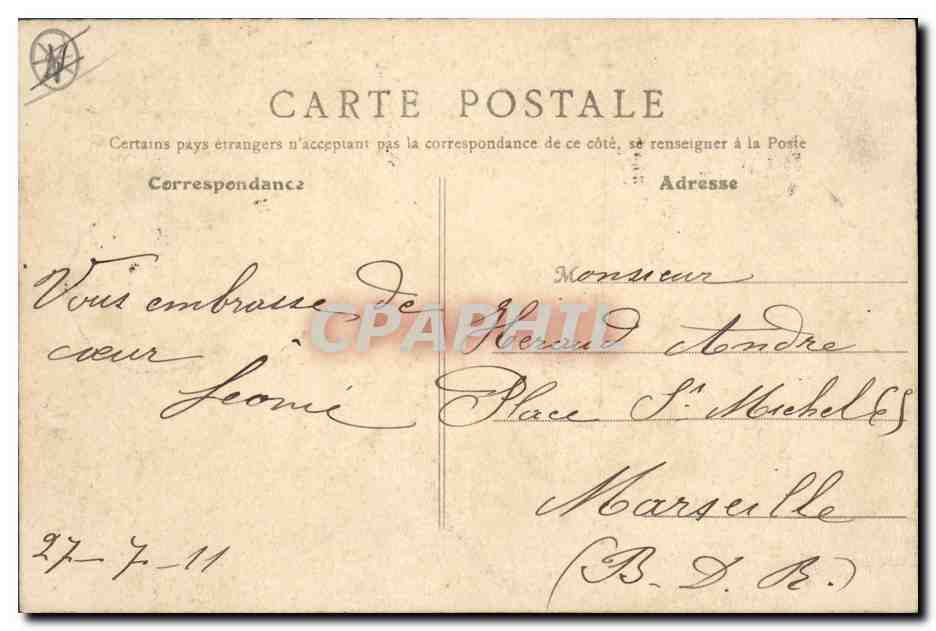 CARTE POSTALE
Certains pays étrangers n'acceptant pas la correspondance de ce côté, se renseigner à la Poste
Correspondance
Adresse
Vous embrasse de
cœur
Léonie
27-7-11
Monsieur
Heraud André
Place St Michel
Marseille
(B. D. R.)
CPAPHIL